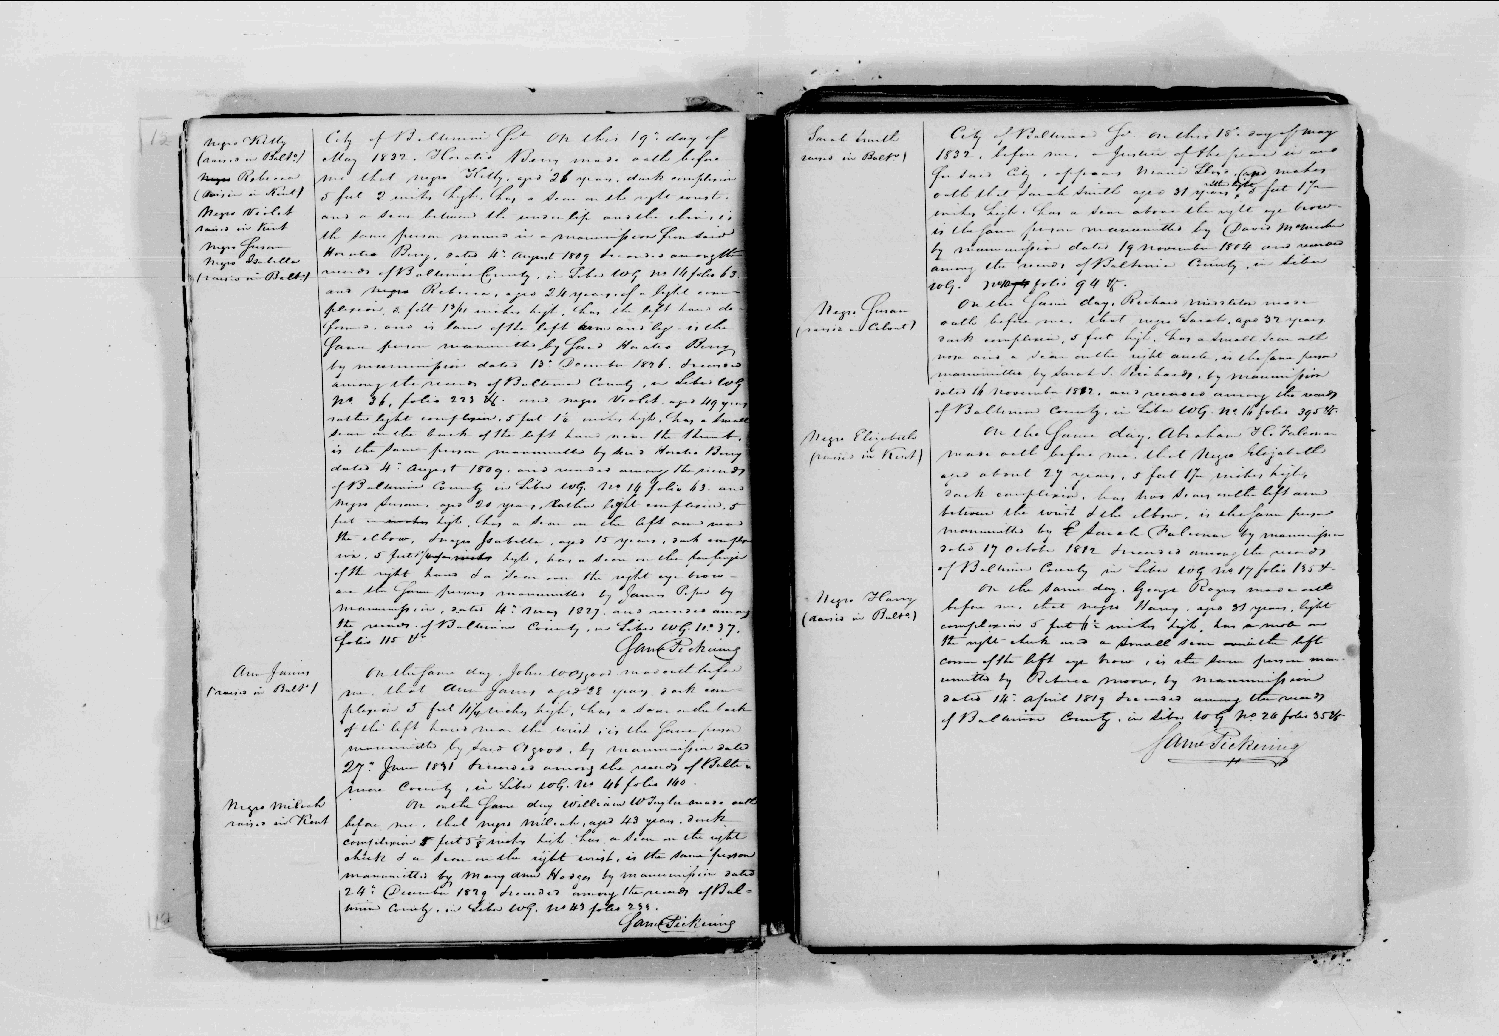 Negro Kitty
(raised in Balto)
Negro Rebecca
(raised in Kent)
Negro Violet
raised in Kent
Negro Susan
Negro Isabella
(raised in Balto)
City of Baltimore Sct On this 19th day of
May 1832. Horatio Berry made oath before
me that negro Kitty, aged 26 years, dark complexion
5 feet 2 inches high, has a scar on the right wrist.
and a scar between the under lip and the chin, is
the same person named in a manumission from said
Horatio Berry, dated 4th August 1809 recorded among the
records of Baltimore County, in Liber WG No 14 folio 63.
and negro Rebecca, aged 24 years, of a light com-
plexion, 5 feet inches high, has the left hand de-
formed, and is lame of the left arm and leg is the
same person manumitted by said Horatio Berry
by manumission dated 13th December 1826. recorded
among the records of Baltimore County, in Liber WG
No 36, folio 223 &c. and negro Violet, aged 49 years
rather light complexion, 5 feet 1½ inches high, has a small
scar on the back of the left hand near the thumb,
is the same person manumitted by said Horatio Berry
dated 4th August 1809. and recorded among the records
of Baltimore County in Liber WG. No 14 folio 63. and
Negro Susan, aged 20 years, Rather light complexion, 5
feet inches high, has a scar on the left arm near
the elbow, negro Isabella, aged 15 years, dark complex-
ion, 5 feet high, has a scar on the forefinger
of the right hand & a scar over the right eye brow
are the same persons manumitted by James Piper by
manumission, dated 4th May 1827. and recorded among
the records of Baltimore County, in Liber WG No 37.
folio 115 &c.
Jams Pickering
Ann James
(raised in Balto)
On the same day, John W Osgood made oath before
me, that Ann James aged 28 years, dark com-
plexion 5 feet inches high, has a scar on the back
of the left hand near the wrist, is the same person
manumitted by said Osgood, by manumission dated
27th June 1831 recorded among the records of Balti-
more County, in Liber WG. No 46 folio 140.
Negro Milcah
raised in Kent
On the same day William W Taylor made oath
before me, that negro Milcah, aged 43 years, dark
complexion 5 feet 5½ inches high has a scar on the right
cheek & a scar on the right wrist, is the same person
manumitted by Mary Ann Hodges by manumission dated
24th December 1829 recorded among the records of Bal-
timore County, in Liber WG. No 43 folio 238.
Jams Pickering
Sarah Smith
raised in Balto)
City of Baltimore Sc. On this 18th day of May
1832, before me, a Justice of the peace in and
for said City, appears Maria and makes
oath that Sarah Smith aged 31 years, rather light, 5 feet
inches high, has a scar above the right eye brow
is the same person manumitted by David
by manumission dated 19 November 1804 and recorded
among the records of Baltimore County, in Liber
WG. folio 94 &c.
Negro Susan
(raised in Calvert)
On the same day, Richard made
oath before me, that negro Sarah, aged 32 years
dark complexion, 5 feet high, has a small scar on the
nose and a scar on the right ancle, is the same person
manumitted by Sarah S. Richards, by manumission
dated 16 November 1812, and recorded among the records
of Baltimore County, in Liber WG. No 16 folio 395 &c.
Negro Elizabeth
(raised in Kent)
On the same day, Abraham H. Falconar
made oath before me, that Negro Elizabeth
aged about 27 years, 5 feet inches high,
dark complexion, has two scars on the left arm
between the wrist & the elbow, is the same person
manumitted by Sarah Falconar by manumission
dated 17 October 1812 recorded among the records
of Baltimore County in Liber WG No 17 folio 135 &c.
Negro Harry
(raised in Balto)
On the same day, George Rogers made oath
before me, that negro Harry, aged 31 years, light
complexion 5 feet inches high, has a mole on
the right cheek and a small scar the left
corner of the left eye brow, is the same person man-
umitted by Rebecca Moore, by manumission
dated 14th April 1819 recorded among the records
of Baltimore County, in Liber WG No 24 folio 35 &c.
Jams Pickering